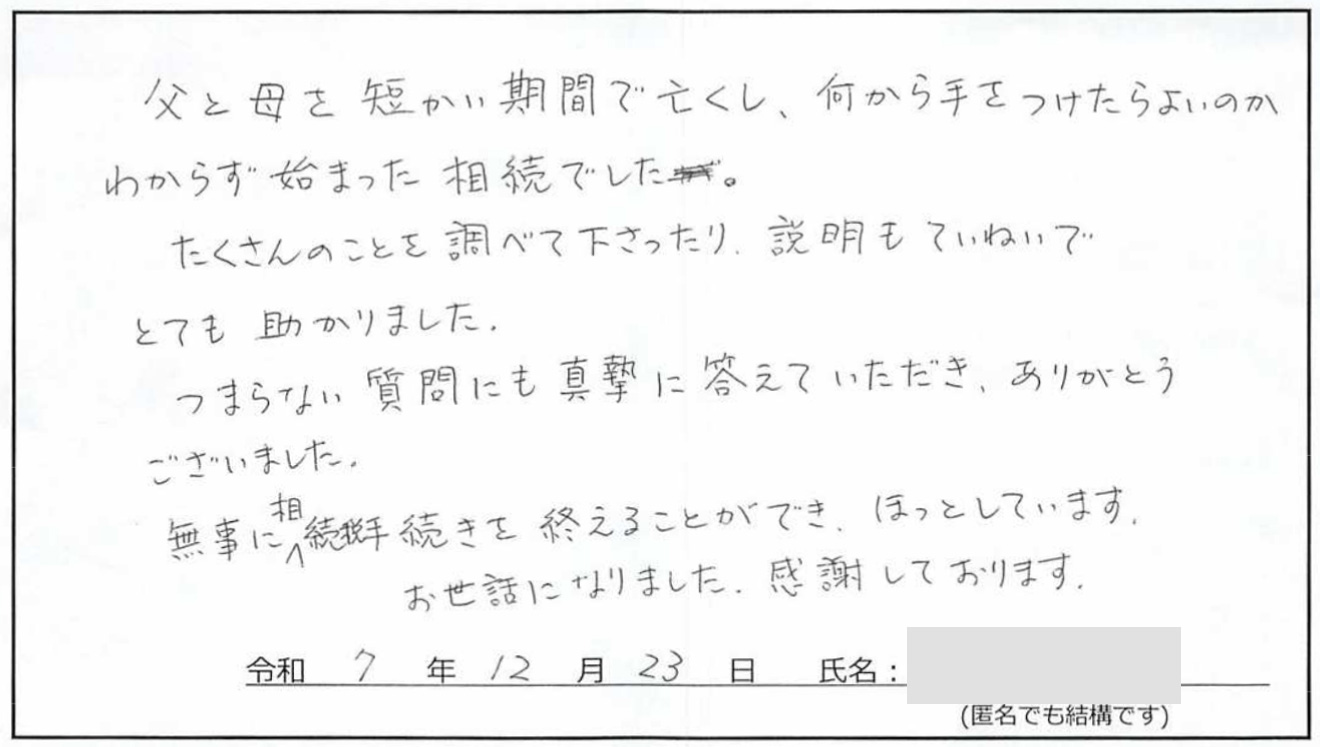 父と母を短かい期間で亡くし、何から手をつけたらよいのか
わからず始まった相続でした。
たくさんのことを調べて下さったり、説明もていねいで
とても助かりました。
つまらない質問にも真摯に答えていただき、ありがとう
ございました。
無事に相続税手続きを終えることができ、ほっとしています。
お世話になりました。感謝しております。
令和 7 年 12 月 23 日 氏名：
(匿名でも結構です)